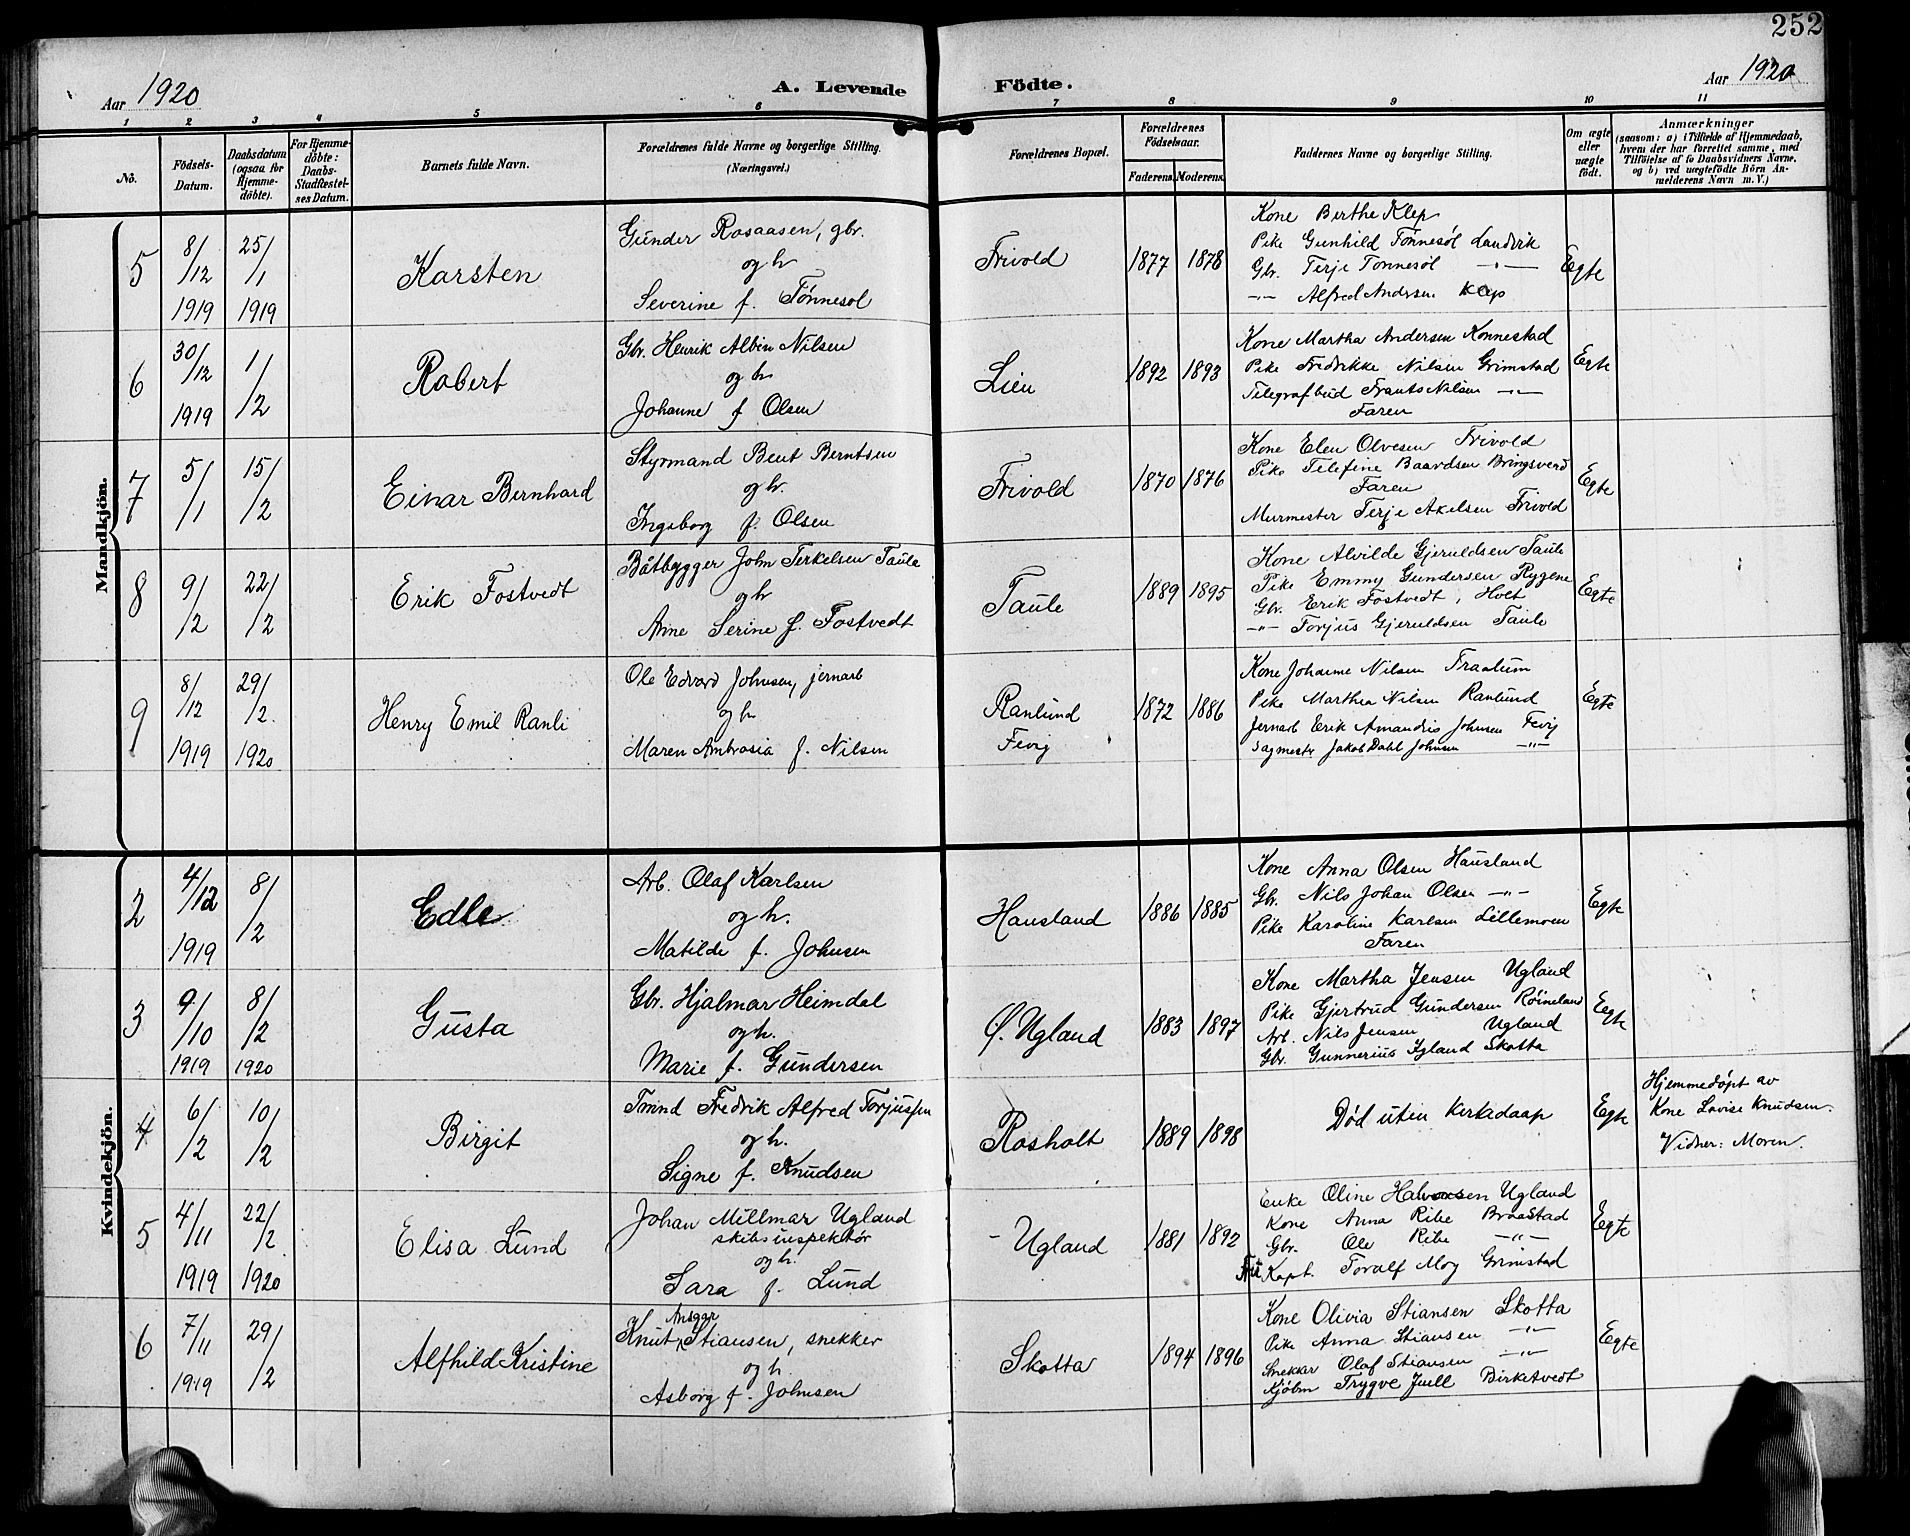 252
Aar 1920
A. Levende
Födte.
Aar 1920
1 2 3 4 5 6 7 8 9 10 11
No.
Födsels-Datum.
Daabsdatum (ogsaa for Hjemme-döbte).
For Hjemme-döbte: Daabs-Stadfæstel-ses Datum.
Barnets fulde Navn.
Forældrenes fulde Navne og borgerlige Stilling. (Næringsvei.)
Forældrenes Bopæl.
Forældrenes Födselsaar.
Faderens. Moderens.
Faddernes Navne og borgerlige Stilling.
Om ægte eller uægte födt.
Anmærkninger
(saasom: a) i Tilfælde af Hjemmedaab, hvem der har forrettet samme, med Tilföielse af to Daabsvidners Navne, og b) ved uægtefödte Börn An-melderens Navn m. V.)
Mandkjön.
5 8/12 1919 25/1 1919 Karsten
Gunder Rosaasen, gbr.
og h
Severine f. Tönnesøl
Frivold 1877 1878
Kone Birthe Klep
Pike Gunhild Tønnesøl Landvik
Gbr. Terje Tønnesøl —"—
—"— Alfred Andrsen Klep
Egte
6 30/12 1919 1/2 Robert
Gbr. Henrik Albin Nilsen
og h
Johanne f Olsen
Lien 1892 1893
Kone Martha Andersen Konnestad
Pike Fredrikke Nilsen Grimstad
Telegrafbud Frants Nilsen —"—
Faren
Egte
7 5/1 15/2 Einar Bernhard
Styrmand Bent Berntsen
og h.
Ingeborg f. Olsen
Frivold 1870 1876
Kone Elen Olvesen Frivold
Pike Telefine Baardsen Bringsverd
Faren
Murmester Terje Akelsen Frivold
Egte
8 9/2 22/2 Erik Fostvedt
Båtbygger John Terkelsen Taule
og h
Anne Serine f. Fostvedt
Taule 1889 1895
Kone Alvilde Gjeruldsen Taule
Pike Emmy Gundersen Rygene
Gbr. Erik Fostvedt, Holt
—"— Torjus Gjeruldsen Taule
Egte
9 8/12 1919 29/2 1920 Henry Emil Ranli
Ole Edvard Johnsen, jernarb
og h
Maren Ambrosia f. Nilsen
Ranlund
Fevig
1872 1886
Kone Johanne Nilsen
Pike Marthea Nilsen Ranlund
Jernarb Erik Amandus Johnsen Fevig
Sagmestr Jakob Dahl Johnsen —"—
Egte
Kvindekjön.
2 4/12 1919 8/2 Edle
Arb. Olaf Karlsen
og h.
Matilde f. Johnsen
Hausland 1886 1885
Kone Anna Olsen Hausland
Gbr. Nils Johan Olsen —"—
Pike Karoline Karlsen Lillemoen
Faren
Egte
3 9/10 1919 8/2 1920 Gusta
Gbr. Hjalmar Heimdal
og h.
Marie f. Gundersen
Ø. Ugland 1883 1897
Kone Martha Jensen Ugland
Pike Gjertrud Gundersen Röineland
Arb. Nils Jensen Ugland
Gbr. Gunnerius Igland Skotta
Egte
4 6/2 10/2 Birgit
Tmnd Fredrik Alfred Torjussen
og h.
Signe f. Knudsen
Rosholt 1889 1898
Død uten Kirkedaap
Egte
Hjemmedøpt av
Kone Lovise Knudsen.
Vidner: Moren.
5 4/11 1919 22/2 1920 Elisa Lund
Johan Millmar Ugland
skibsinspektør
og h.
Sara f. Lund
Ugland 1881 1892
Enke Oline Halvorsen Ugland
Kone Anna Ribe Braastad
Gbr. Ole Ribe —"—
Kapt. Toralf Moy Grimstad
Egte
6 7/11 1919 29/2 Alfhild Kristine
Ansgar
Knut Stiansen, snekker
og h.
Asborg f. Johnsen
Skotta 1894 1896
Kone Olivia Stiansen Skotta
Pike Anna Stiansen —"—
Snekker Olaf Stiansen —"—
Kjøbm Trygve Juell Birketvedt
Egte